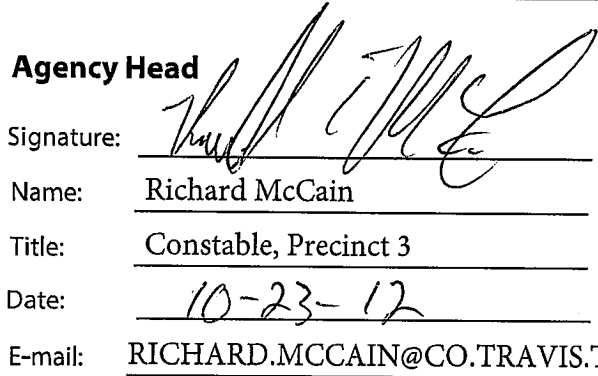 Agency Head
Signature:
Name: Richard McCain
Title: Constable, Precinct 3
Date: 10-23-12
E-mail: RICHARD.MCCAIN@CO.TRAVIS.